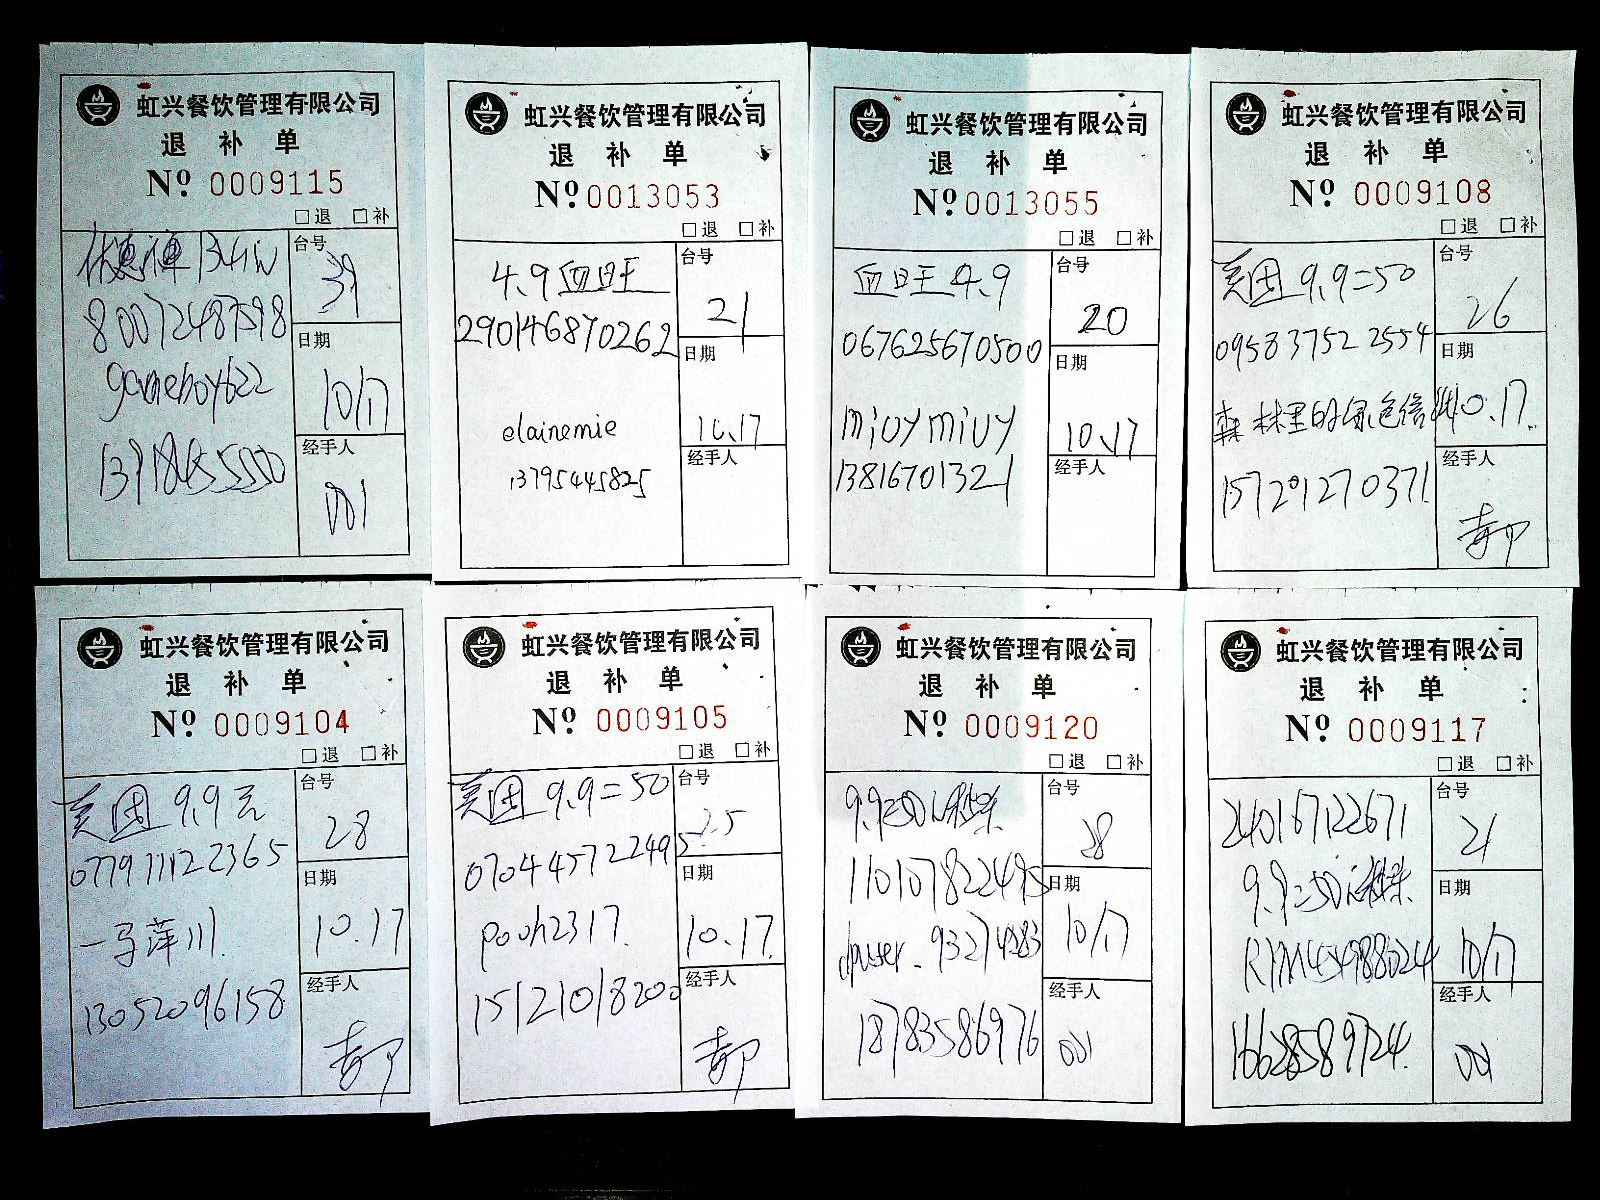 虹兴餐饮管理有限公司
退 补 单
Nº 0009115
□退 □补
台号
39
80072487598
日期
gameboy622
10/17
经手人
001
虹兴餐饮管理有限公司
退 补 单
Nº 0013053
□退 □补
4.9血旺
台号
21
290146870262
日期
elainemie
10.17
13795445825
经手人
虹兴餐饮管理有限公司
退 补 单
Nº 0013055
□退 □补
血旺 4.9
台号
20
067625670500
日期
miuymiuy
10.17
13816701321
经手人
虹兴餐饮管理有限公司
退 补 单
Nº 0009108
□退 □补
美团 9.9=50
台号
26
095837522554
日期
森林里的绿色信
10.17
15720127 0371
经手人
虹兴餐饮管理有限公司
退 补 单
Nº 0009104
□退 □补
美团 9.9元
台号
28
077911122365
日期
一马萍川
10.17
13052096158
经手人
虹兴餐饮管理有限公司
退 补 单
Nº 0009105
□退 □补
美团 9.9=50
台号
25
070445722495
日期
pooh2317
10.17
15121018200
经手人
虹兴餐饮管理有限公司
退 补 单
Nº 0009120
□退 □补
台号
28
110107822495
日期
10/17
18783586976
经手人
001
虹兴餐饮管理有限公司
退 补 单
Nº 0009117
□退 □补
240167122671
台号
21
日期
10/17
经手人
16628589724
001